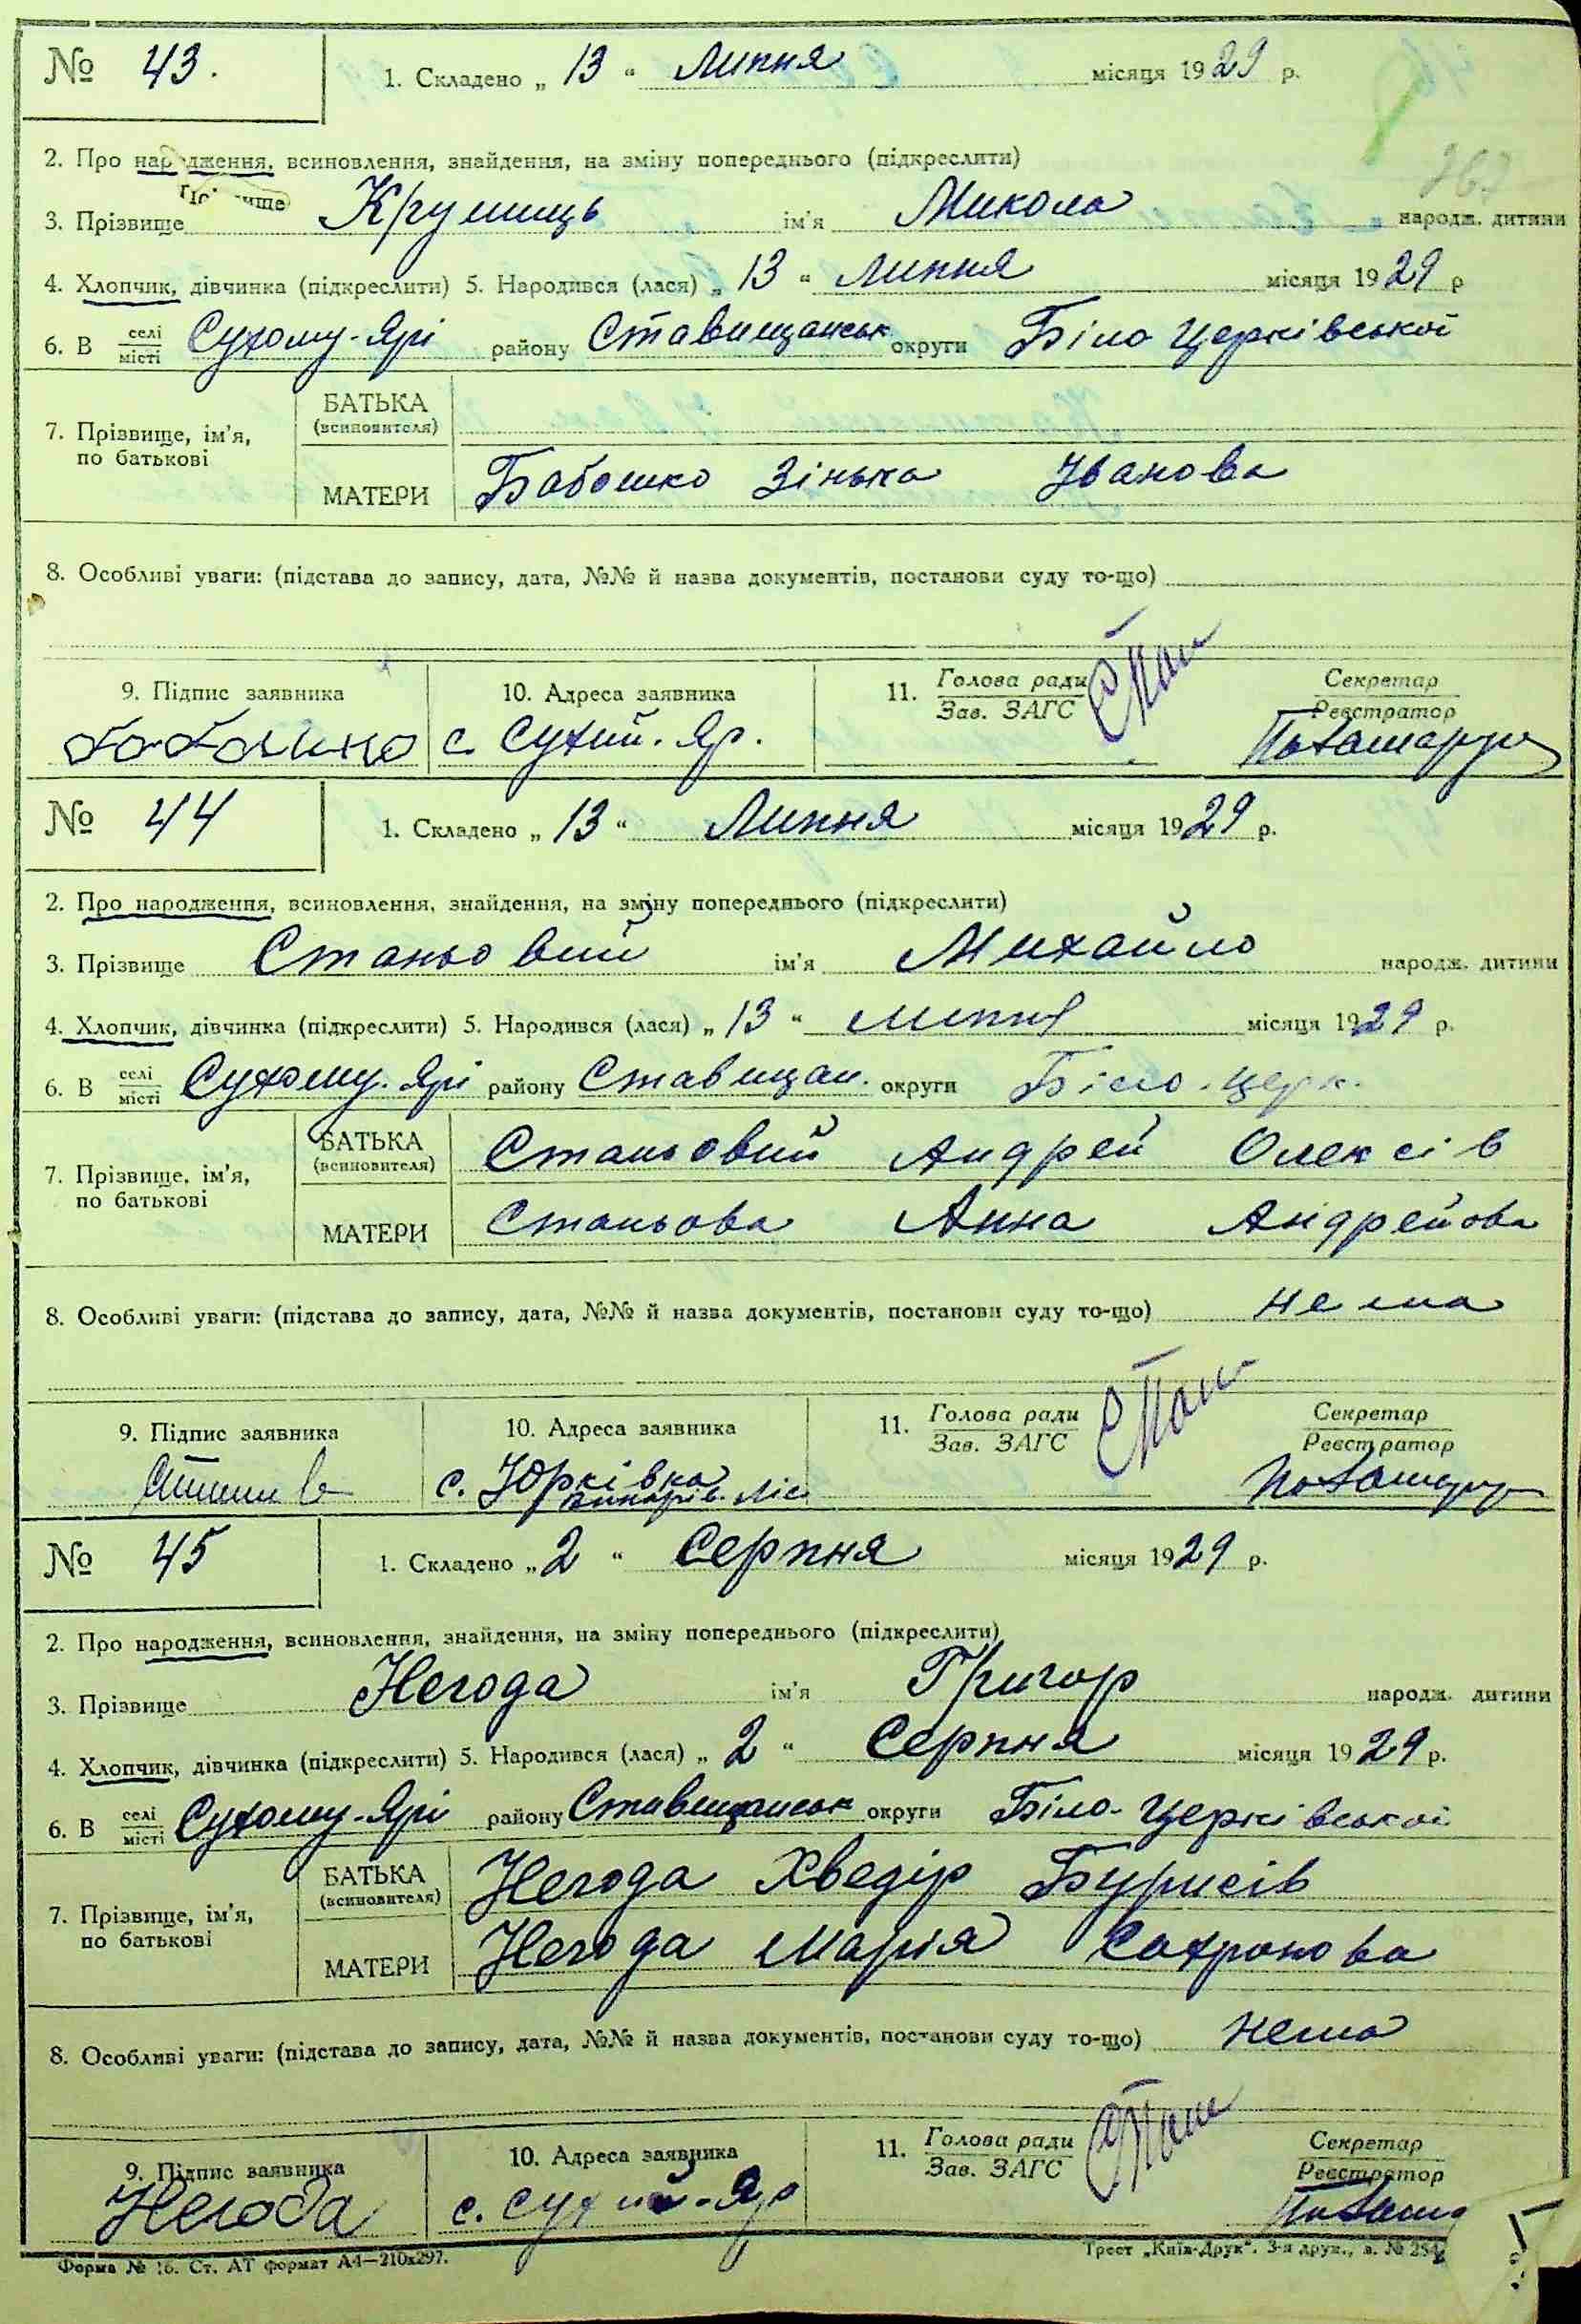 № 43. 1. Складено „ 13 “ Липня місяця 1929 р.
2. Про народження, всиновлення, знайдення, на зміну попереднього (підкреслити)
3. Прізвище Крушиць ім'я Микола народж. дитини
4. Хлопчик, дівчинка (підкреслити) 5. Народився (лася) „ 13 “ Липня місяця 1929 р
6. В селі місті Сухому-Ярі району Ставищанськ округи Біло Церківської
7. Прізвище, ім'я, по батькові БАТЬКА (всиновителя)
МАТЕРИ Бабошко Зінька Іванова
8. Особливі уваги: (підстава до запису, дата, №№ й назва документів, постанови суду то-що)
9. Підпис заявника 10. Адреса заявника 11. Голова ради Зав. ЗАГС Секретар Реєстратор
с. Сухий-Яр.
№ 44 1. Складено „ 13 “ Липня місяця 1929 р.
2. Про народження, всиновлення, знайдення, на зміну попереднього (підкреслити)
3. Прізвище Станьовий ім'я Михайло народж. дитини
4. Хлопчик, дівчинка (підкреслити) 5. Народився (лася) „ 13 “ липня місяця 1929 р.
6. В селі місті Сухому-Ярі району Ставищан. округи Біло-церк.
7. Прізвище, ім'я, по батькові БАТЬКА (всиновителя) Станьовий Андрей Олексів
МАТЕРИ Станьова Анна Андрейова
8. Особливі уваги: (підстава до запису, дата, №№ й назва документів, постанови суду то-що) нема
9. Підпис заявника 10. Адреса заявника 11. Голова ради Зав. ЗАГС Секретар Реєстратор
с. Юрківка
№ 45 1. Складено „ 2 “ Серпня місяця 1929 р.
2. Про народження, всиновлення, знайдення, на зміну попереднього (підкреслити)
3. Прізвище Негода ім'я Григор народж. дитини
4. Хлопчик, дівчинка (підкреслити) 5. Народився (лася) „ 2 “ Серпня місяця 1929 р.
6. В селі місті Сухому-Ярі району Ставищанськ округи Біло-Церківської
7. Прізвище, ім'я, по батькові БАТЬКА (всиновителя) Негода Хведір Бурисів
МАТЕРИ Негода Марія Сахронова
8. Особливі уваги: (підстава до запису, дата, №№ й назва документів, постанови суду то-що) нема
9. Підпис заявника 10. Адреса заявника 11. Голова ради Зав. ЗАГС Секретар Реєстратор
Негода с. Сухий-Яр
Форма № 16. Ст. АТ формат А4—210х297. Трест „Київ-Друк“. 3-я друк., з. № 254